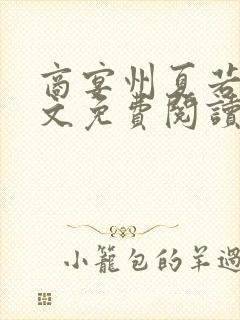 商宴州夏若
文免費閱讀
小籠包的羊過